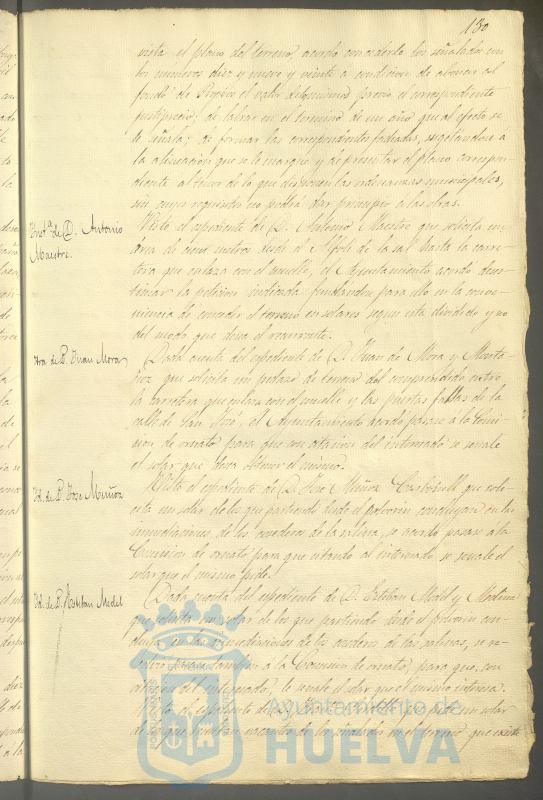 130
vista el plano del terreno, acordo concederle los señalados con
los números diez y nueve y veinte a condicion de abonar al
fondo de Propios el valor de los mismos previo el correspondiente
justiprecio; de labrar en el termino de un año que al efecto se
le señala; de formar las correspondientes fachadas, sugetandose á
la alineacion que se le marque y de presentar el plano correspon-
diente al tenor de lo que disponen las ordenanzas municipales,
sin cuyo requisito no podrá dar principio a las obras.
Inst.ª de D. Antonio
Maestre.
Visto el espediente de D. Antonio Maestre que solicita un
área de cien metros desde el Alfolí de la sal hasta la carre-
tera que enlaza con el muelle, el Ayuntamiento acordo deses-
timar la peticion indicada fundandose para ello en la conve-
niencia de conceder el terreno en solares segun está dividido y no
del modo que desea el recurrente.
D. Juan Mora
Dada cuenta del espediente de D. Juan de Mora y
que solicita un pedazo de terreno del comprendido entre
la carretera que enlaza con el muelle y las puertas falsas de la
calle de San José, el Ayuntamiento acordó pasase a la Comi-
sion de ornato para que con citacion del interesado se señale
el solar que desea obtener el mismo.
Id. de D. Jose Muñoz
Visto el espediente de D. José Muñoz Carbonell que soli-
cita un solar de los que partiendo desde el polvorin concluyen en las
inmediaciones de los corederos de la salina, se acordó pasase á la
Comision de ornato para que citando al interesado se señale el
solar que el mismo pide.
Id. de D. Esteban Medel
Dada cuenta del espediente de D. Esteban Medel y Medina
que solicita un solar de los que partiendo desde el polvorin con-
cluyen en las inmediaciones de los corederos de las salinas, se
tambien a la Comision de ornato para que, con
citacion del interesado, le señale el solar que el mismo interesa.
Visto el espediente de un solar
de los que resultan vacantes de los señalados en el terreno que existe
Ayuntamiento de
HUELVA